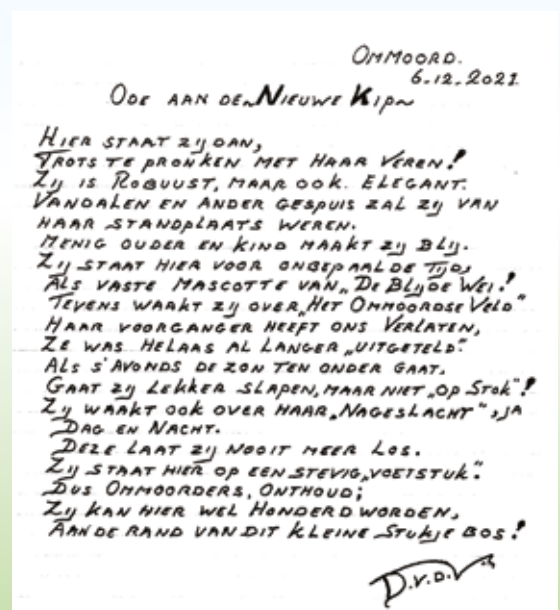 OMMOORD.
6.12.2021
ODE AAN DE NIEUWE KIP~
HIER STAAT ZIJ DAN,
TROTS TE PRONKEN MET HAAR VEREN!
ZIJ IS ROBUUST, MAAR OOK. ELEGANT.
VANDALEN EN ANDER GESPUIS ZAL ZIJ VAN
HAAR STANDPLAATS WEREN.
MENIG OUDER EN KIND MAAKT ZIJ BLIJ.
ZIJ STAAT HIER VOOR ONBEPAALDE TIJD,
ALS VASTE MASCOTTE VAN „DE BLIJDE WEI.!
TEVENS WAAKT ZIJ OVER „HET OMMOORDSE VELD"
HAAR VOORGANGER HEEFT ONS VERLATEN,
ZE WAS HELAAS AL LANGER „UITGETELD".
ALS S'AVONDS DE ZON TEN ONDER GAAT,
GAAT ZIJ LEKKER SLAPEN, MAAR NIET „OP STOK"!
ZIJ WAAKT OOK OVER HAAR „NAGESLACHT", JA
DAG EN NACHT.
DEZE LAAT ZIJ NOOIT MEER LOS.
ZIJ STAAT HIER OP EEN STEVIG „VOETSTUK".
DUS OMMOORDERS, ONTHOUD;
ZIJ KAN HIER WEL HONDERD WORDEN,
AAN DE RAND VAN DIT KLEINE STUKJE BOS!
D.V.D.V